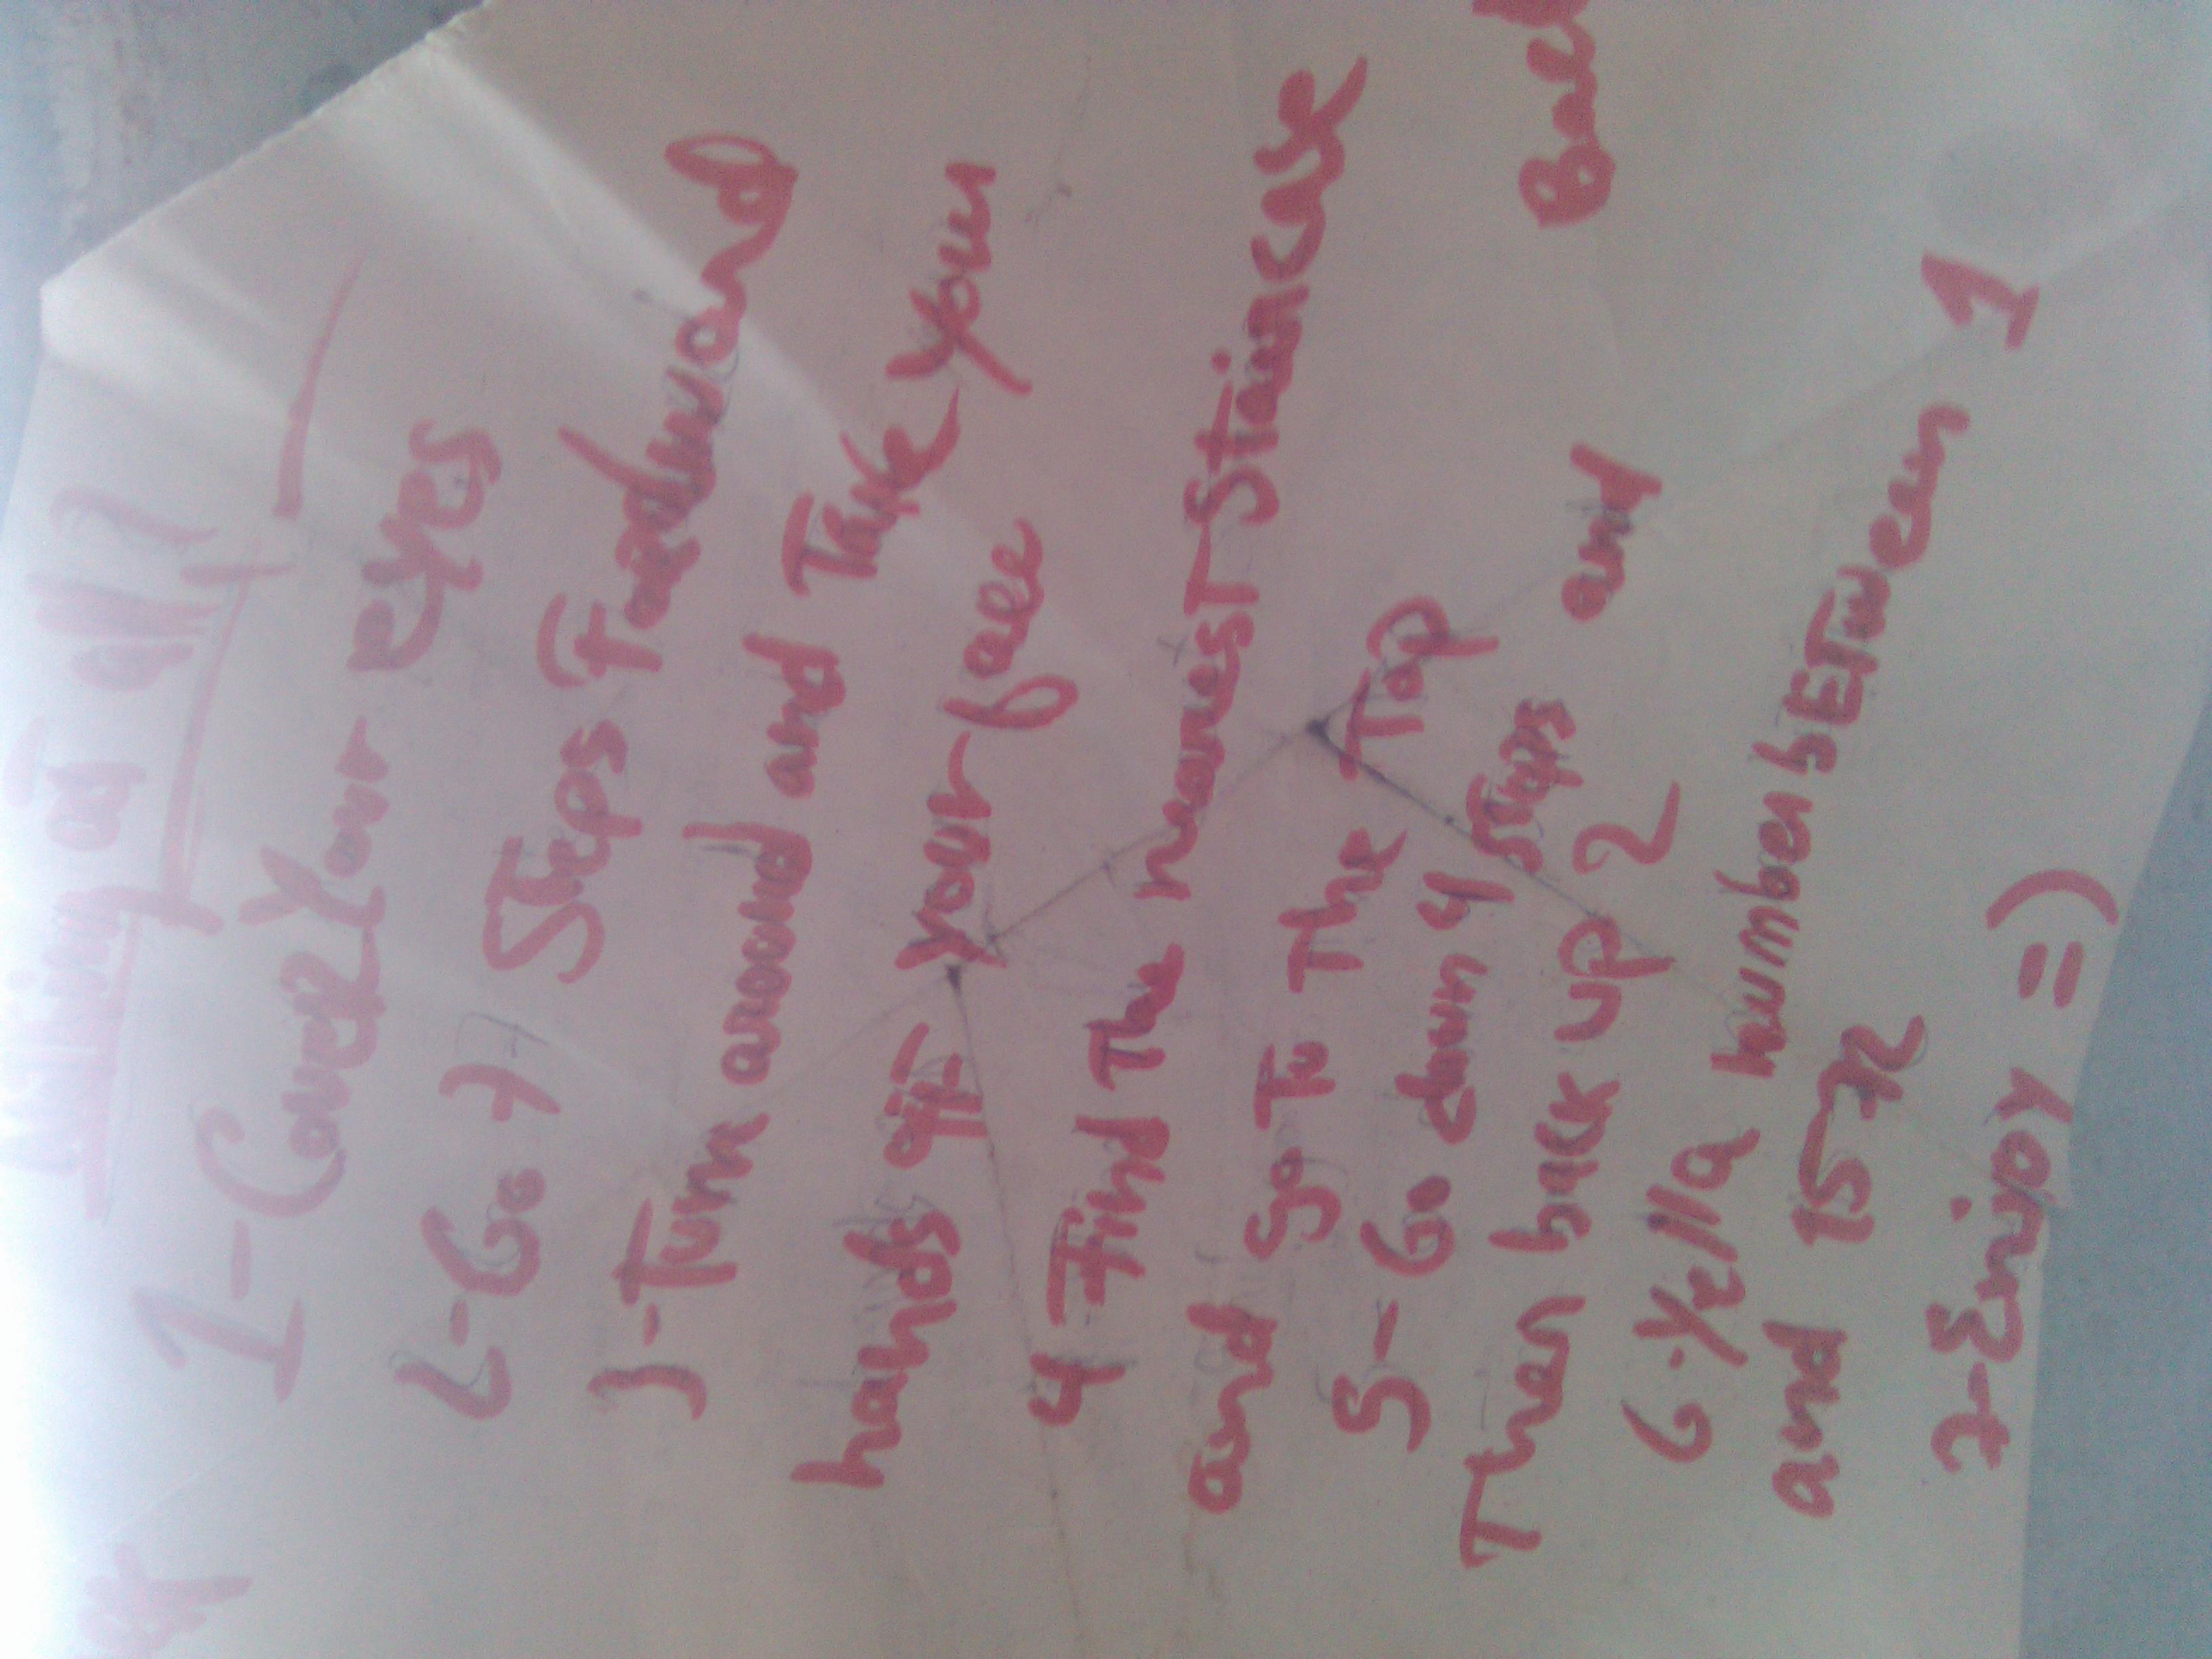 at all!
1-Cover Your eyes
2-Go 7 Steps Forward
3-Turn around and Take your
hands off your face
4 Find The nearest Staircase
and go To The Top
5- Go down 4 Steps and
Then back up 2
6-Yell a number BETween 1
and 1572
7-Enjoy =)